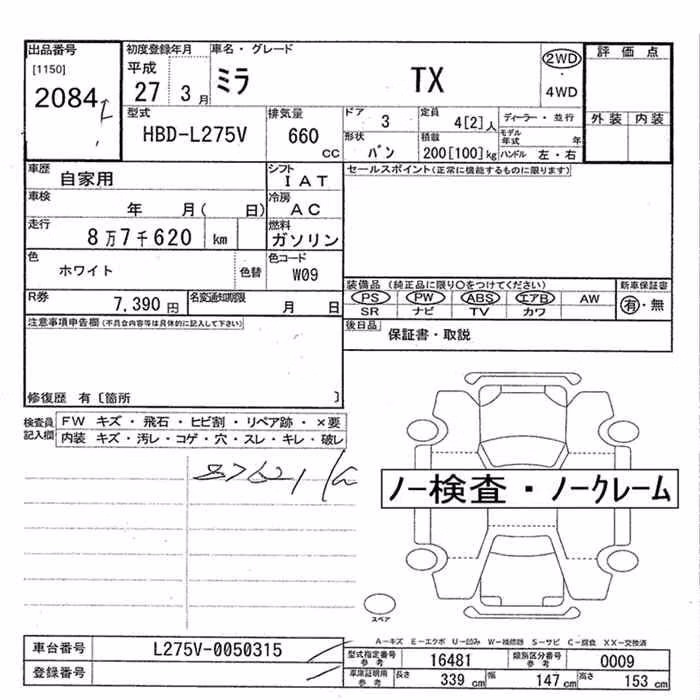 出品番号
[1150]
2084
初度登録年月
平成
27 3 月
車名・グレード
ミラ TX
2WD
・
4WD
評価点
外装 内装
型式
HBD-L275V
排気量
660
cc
ドア
3
定員
4[2]人
ディーラー・並行
形状
バン
積載
200[100]kg
モデル年式 年
ハンドル 左・右
車歴
自家用
シフト
IAT
セールスポイント(正常に機能するものに限ります)
車検
年 月( 日)
冷房
AC
走行
8万7千620 km
燃料
ガソリン
色
ホワイト
色替
色コード
W09
装備品(純正品に限り○をつけてください)
新車保証書
PS PW ABS エアB AW
SR ナビ TV カワ
有・無
R券
7,390 円
名変通知期限
月 日
後日品
保証書・取説
注意事項申告欄(不具合内容等は具体的に記入して下さい)
修復歴 有〔箇所 〕
検査員記入欄
FW キズ・飛石・ヒビ割・リペア跡・×要
内装 キズ・汚レ・コゲ・穴・スレ・キレ・破レ
87621
ノー検査・ノークレーム
スペア
A−キズ E−エクボ U−凹み W−補修跡 S−サビ C−腐食 XX−交換済
車台番号
L275V-0050315
登録番号
型式指定番号
参考
16481
類別区分番号
参考
0009
車庫証明用
参考
長さ 339 cm
幅 147 cm
高さ 153 cm